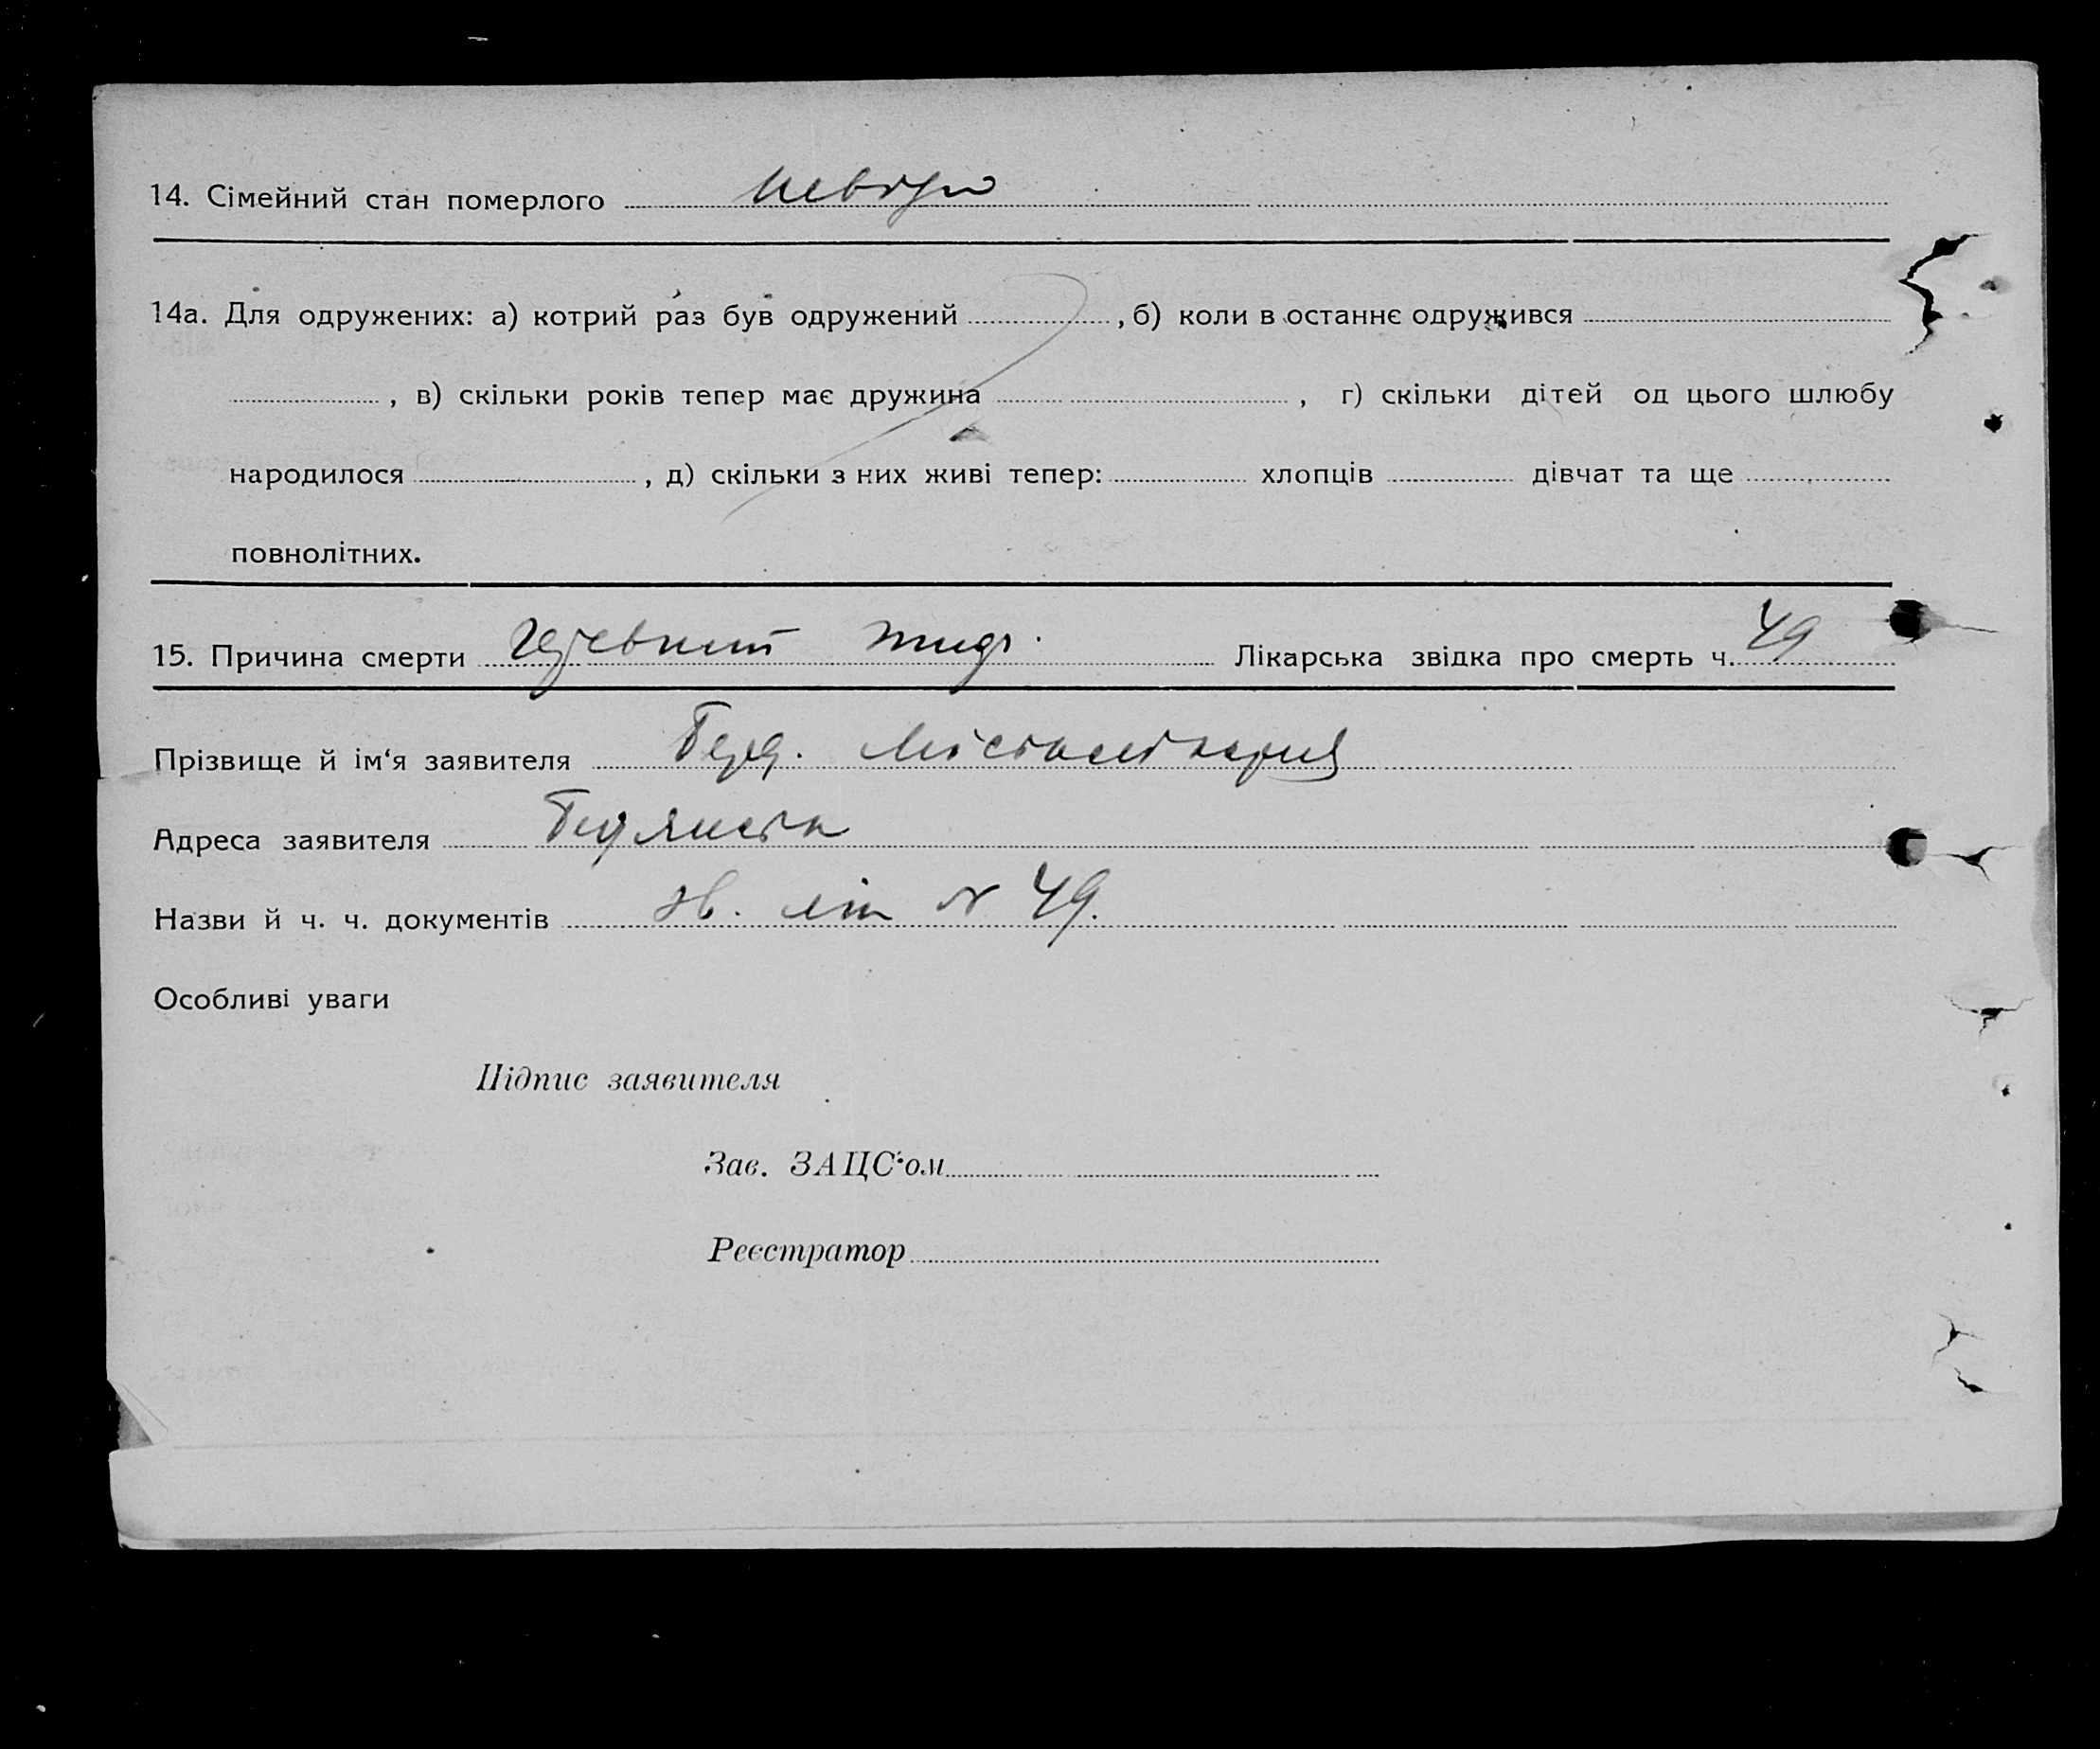 14. Сімейний стан померлого невідом
14а. Для одружених: а) котрий раз був одружений , б) коли в останнє одружився
, в) скільки років тепер має дружина , г) скільки дітей од цього шлюбу
народилося , д) скільки з них живі тепер: хлопців дівчат та ще
повнолітних.
15. Причина смерти Лікарська звідка про смерть ч. 49
Прізвище й ім'я заявителя Берд. Міськлікарня
Адреса заявителя
Назви й ч. ч. документів зв. лік № 49.
Особливі уваги
Підпис заявителя
Зав. ЗАЦС'ом
Реєстратор